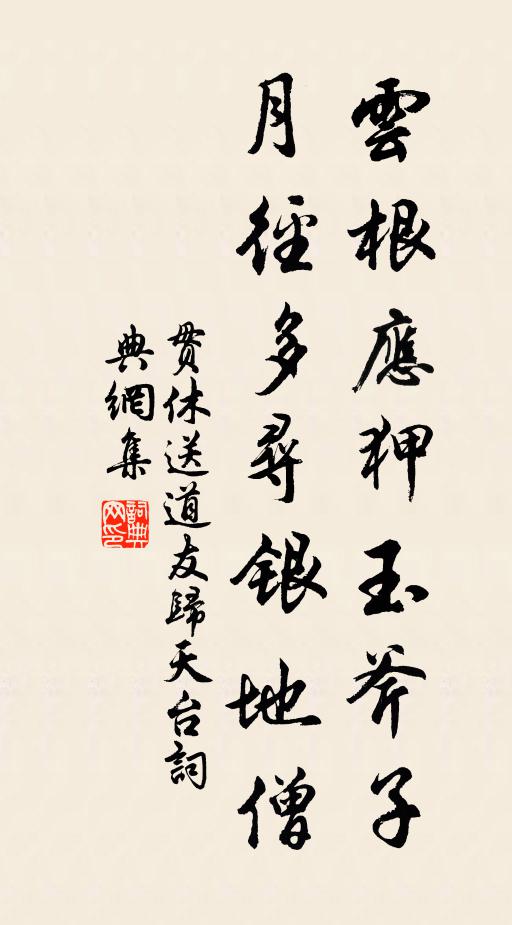 雲根應狎玉斧子
月徑多尋銀地僧
貫休送道友歸天台詞
典網集
詞典网印